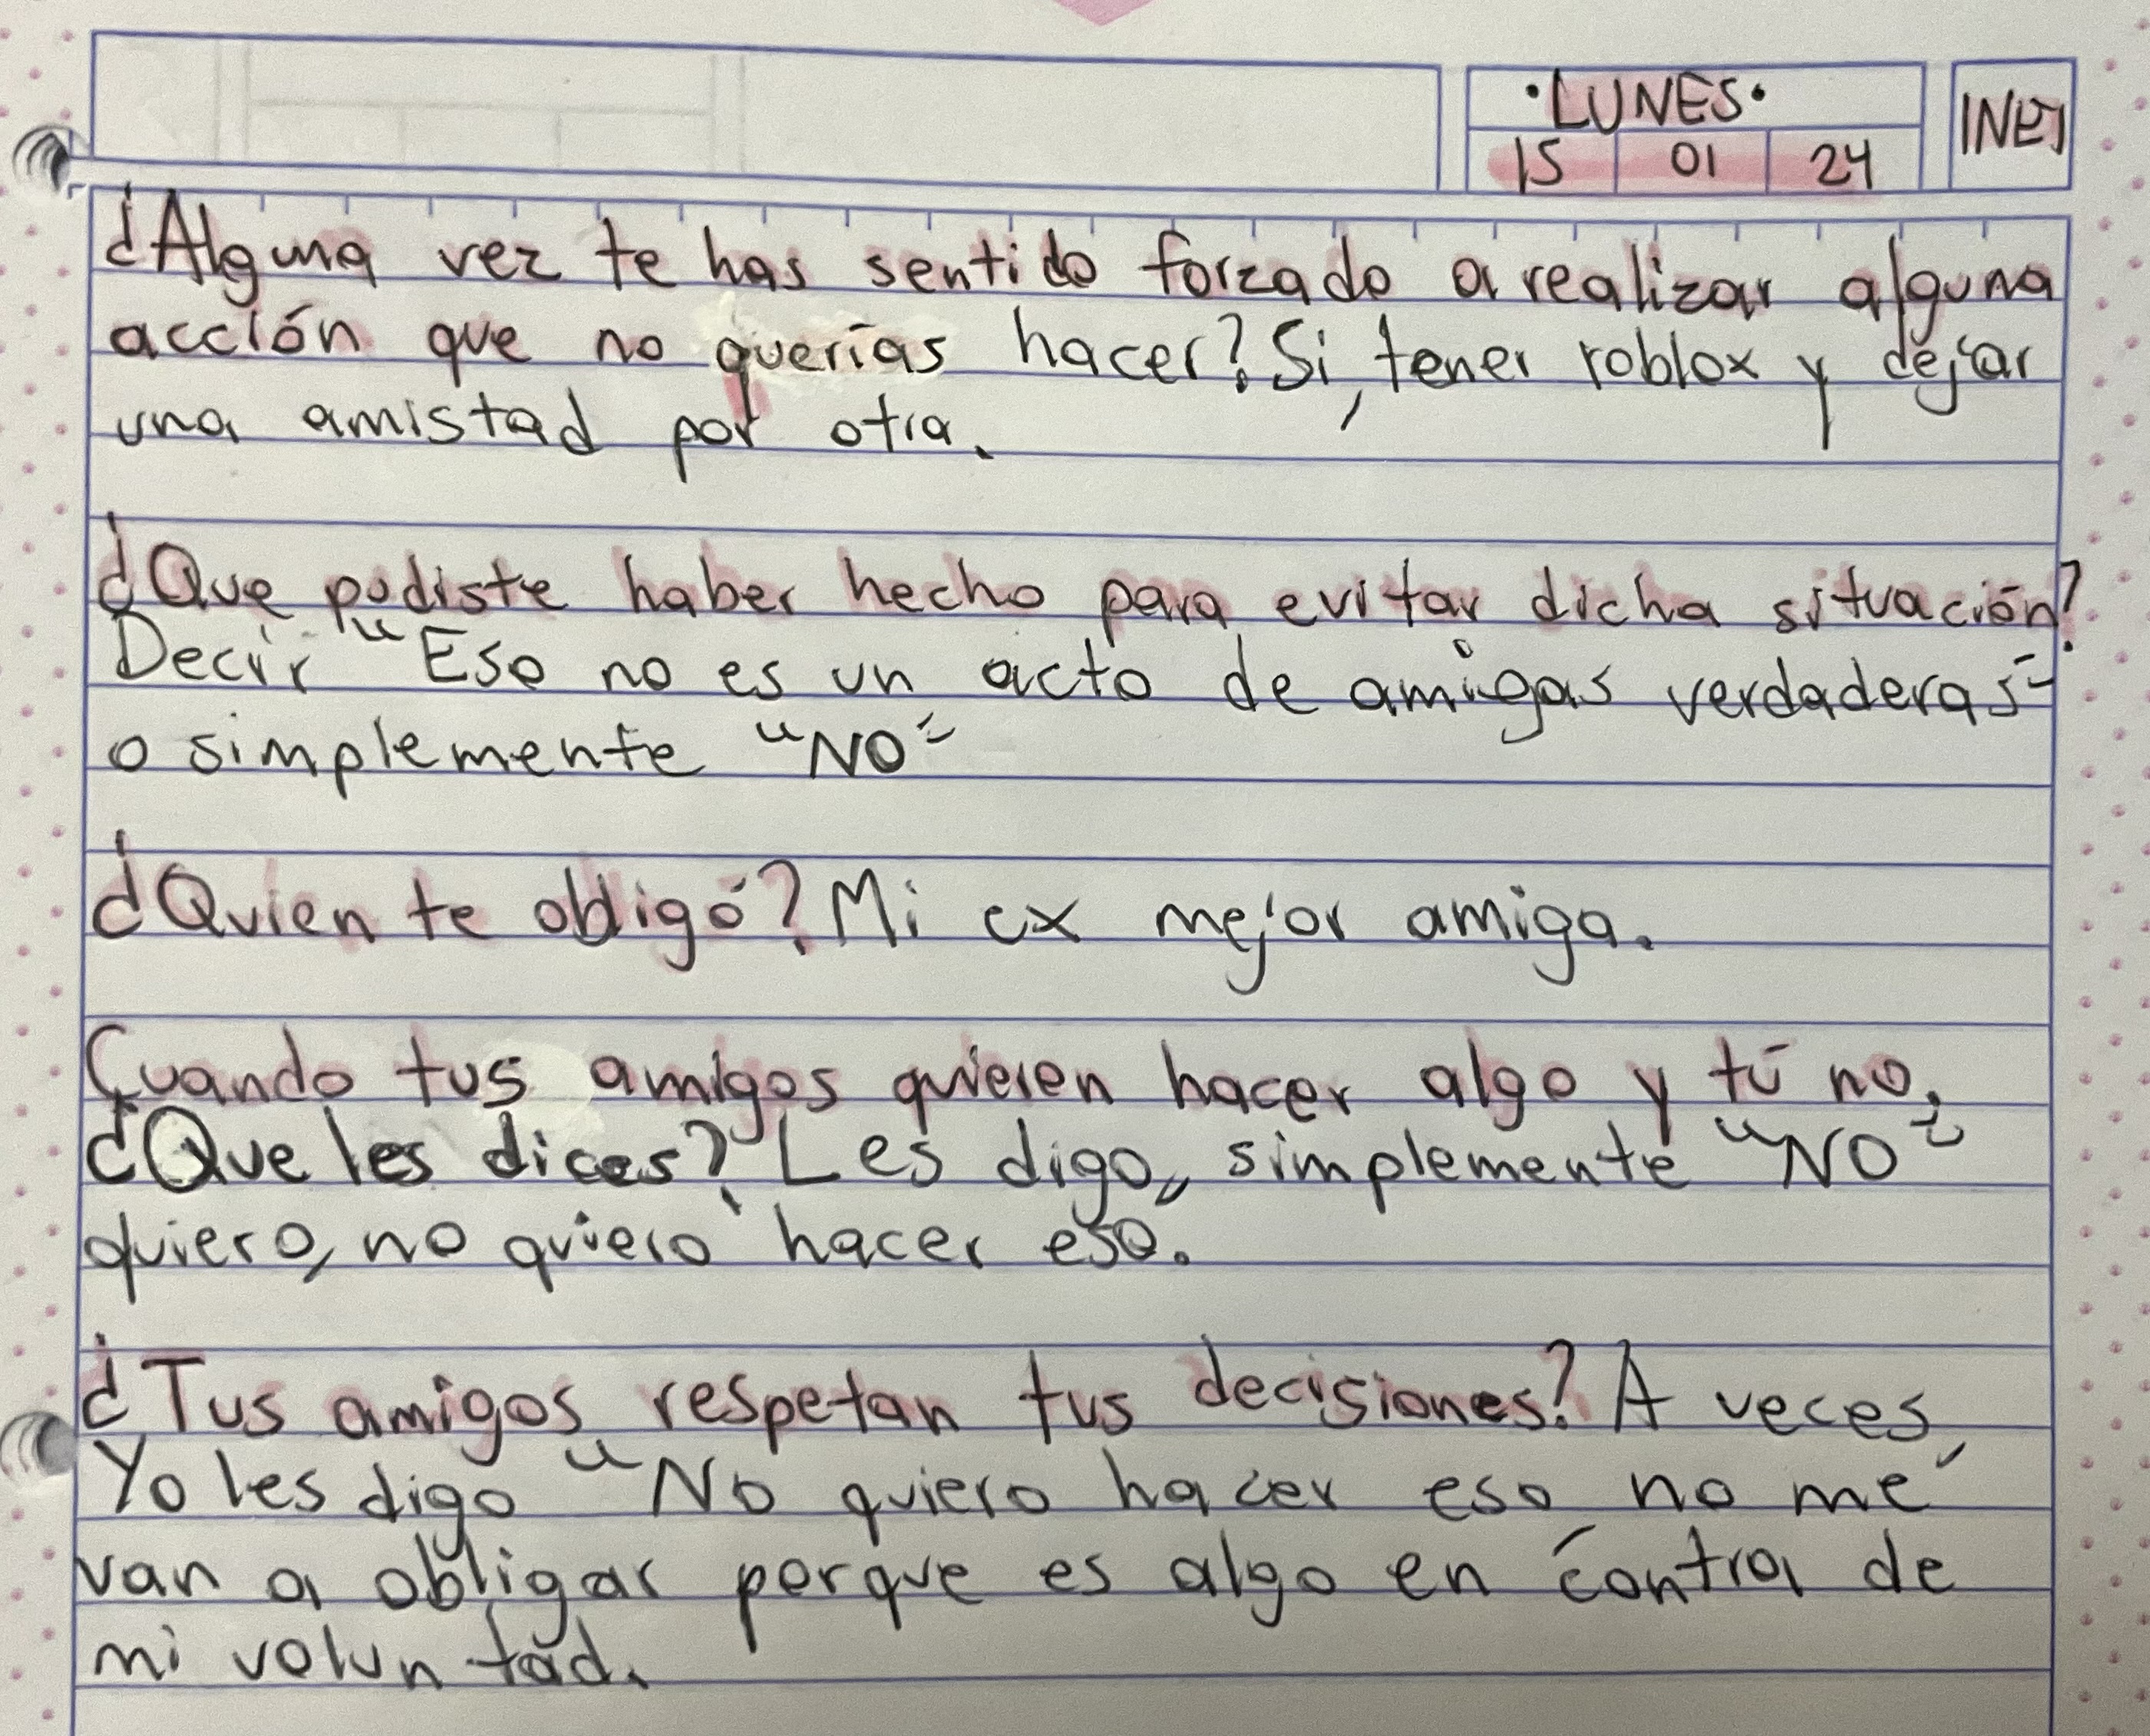 •LUNES•
15 01 24
¿Alguna vez te has sentido forzado a realizar alguna
acción que no querías hacer? Si, tener roblox y dejar
una amistad por otra.
¿Que pudiste haber hecho para evitar dicha situación?
Decir "Eso no es un acto de amigas verdaderas"
o simplemente "NO"
¿Quien te obligó? Mi ex mejor amiga.
Cuando tus amigos quieren hacer algo y tú no,
¿Que les dices? Les digo, simplemente "NO"
quiero, no quiero hacer eso.
¿Tus amigos respetan tus decisiones? A veces,
Yo les digo "No quiero hacer eso no me
van a obligar porque es algo en contra de
mi voluntad.